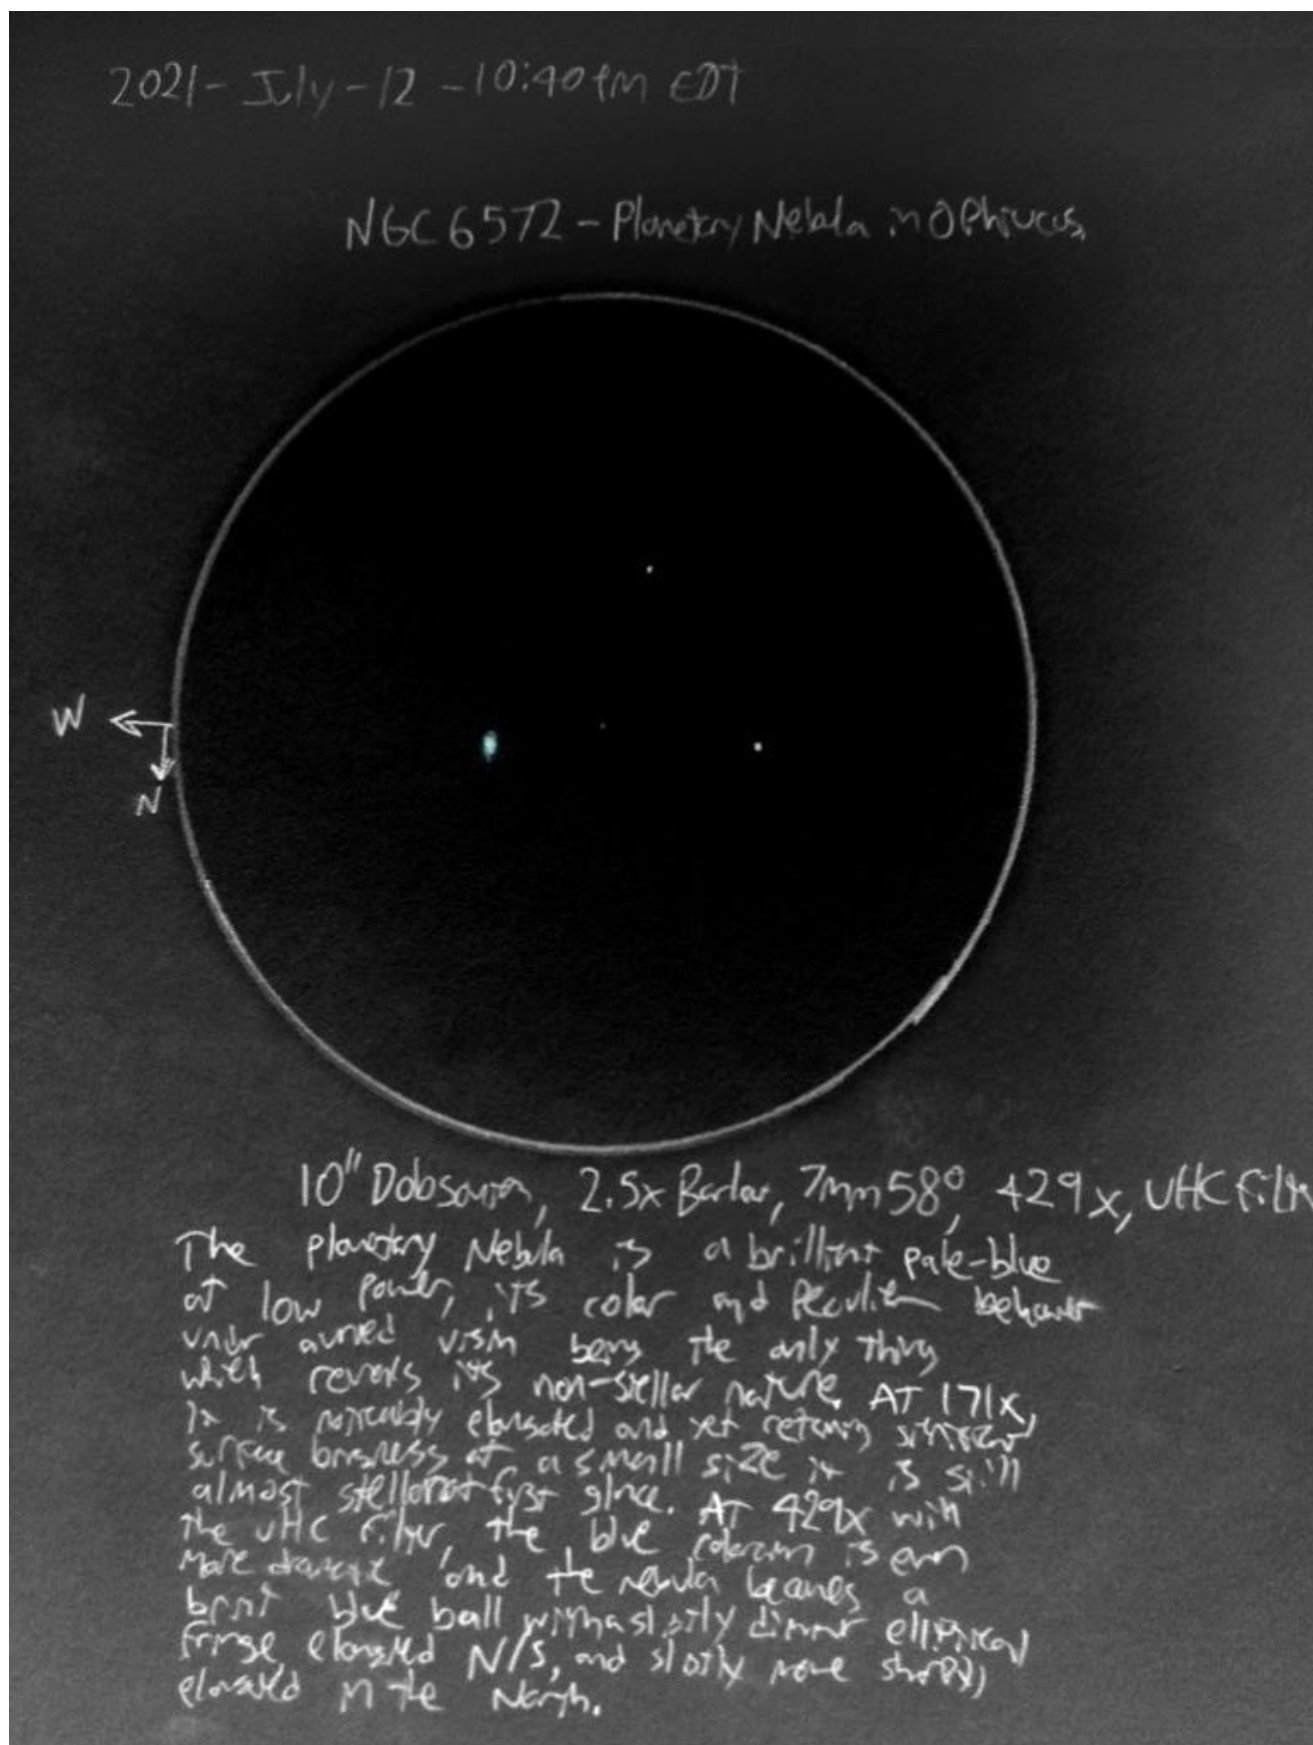 2021-July-12-10:40PM EDT
NGC 6572 - Planetary Nebula in Ophiucus,
W
N
10" Dobsonian, 2.5x Barlow, 7mm 58°, 429x, UHC Filter
The planetary Nebula is a brilliant pale-blue
at low power, its color and peculiar behavior
under averted vision being the only thing
which reveals its non-stellar nature. AT 171x,
It is noticably elongated and yet retains
surface brightness at a small size it is still
almost stellar at first glance. AT 429x with
the UHC filter, the blue coloration is even
more dramatic and the nebula becomes a
bright blue ball with a slightly dimmer elliptical
fringe elongated N/S, and slightly more sharply
elongated in the North.